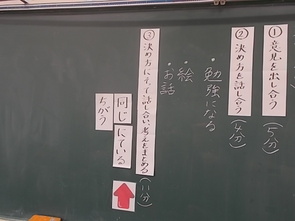 ① 意見を出し合う
(5分)
② 決め方を話し合う
(4分)
・勉強になる
・絵
・お話
③ 決め方にそって話し合い、考えをまとめる
(11分)
同じ
にている
ちがう